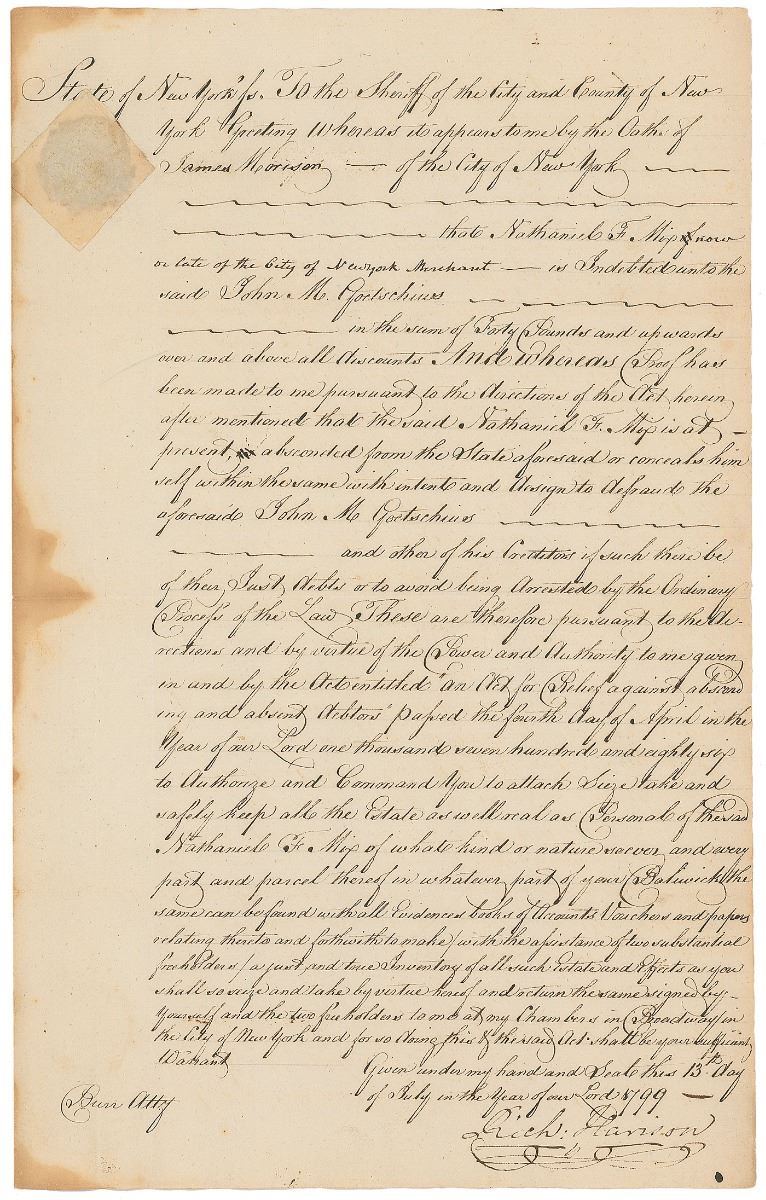 State of New York ss. To the Sheriff of the City and County of New
York Greeting Whereas it appears to me by the Oaths of
James Morison — of the City of New York
that Nathaniel F. Mix now
or late of the City of Newyork Merchant — is Indebted unto the
said John M. Goetschius
in the sum of Forty Pounds and upwards
over and above all discounts And whereas Proof has
been made to me pursuant to the directions of the Act herein
after mentioned that the said Nathaniel F. Mix is at
present absconded from the State aforesaid or conceals him
self within the same with intent and design to defraud the
aforesaid John M Goetschius
and other of his Creditors if such there be
of their Just debts or to avoid being Arrested by the Ordinary
Process of the Law These are therefore pursuant to the di-
rections and by virtue of the Power and Authority to me given
in and by the Act entitled "an Act for Relief against abscond
ing and absent debtors" passed the fourth day of April in the
Year of our Lord one thousand seven hundred and eighty six
to Authorize and Command You to attach Seize take and
safely keep all the Estate as well real as Personal of the said
Nathaniel F Mix of what kind or nature soever and every
part and parcel thereof in whatever part of your Baliwick the
same can be found with all Evidences books of Accounts Vouchers and papers
relating thereto and forthwith to make (with the assistance of two substantial
freeholders) a just and true Inventory of all such Estate and Effects as you
shall so seize and take by virtue hereof and return the same signed by
Yourself and the two freeholders to me at my Chambers in Broadway in
the City of New York and for so doing this & the said Act shall be your sufficient
Warrant
Given under my hand and Seale this 13th day
of July in the Year of our Lord 1799 —
Burr Atty
Rich: Harison